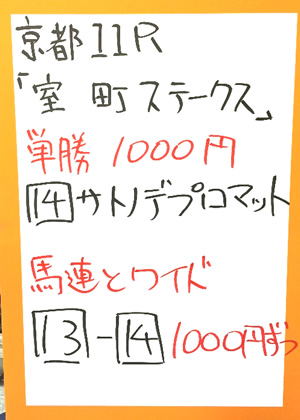 京都11R
「室町ステークス」
単勝 1000円
14 サトノデプロマット
馬連とワイド
13-14 1000円ずつ